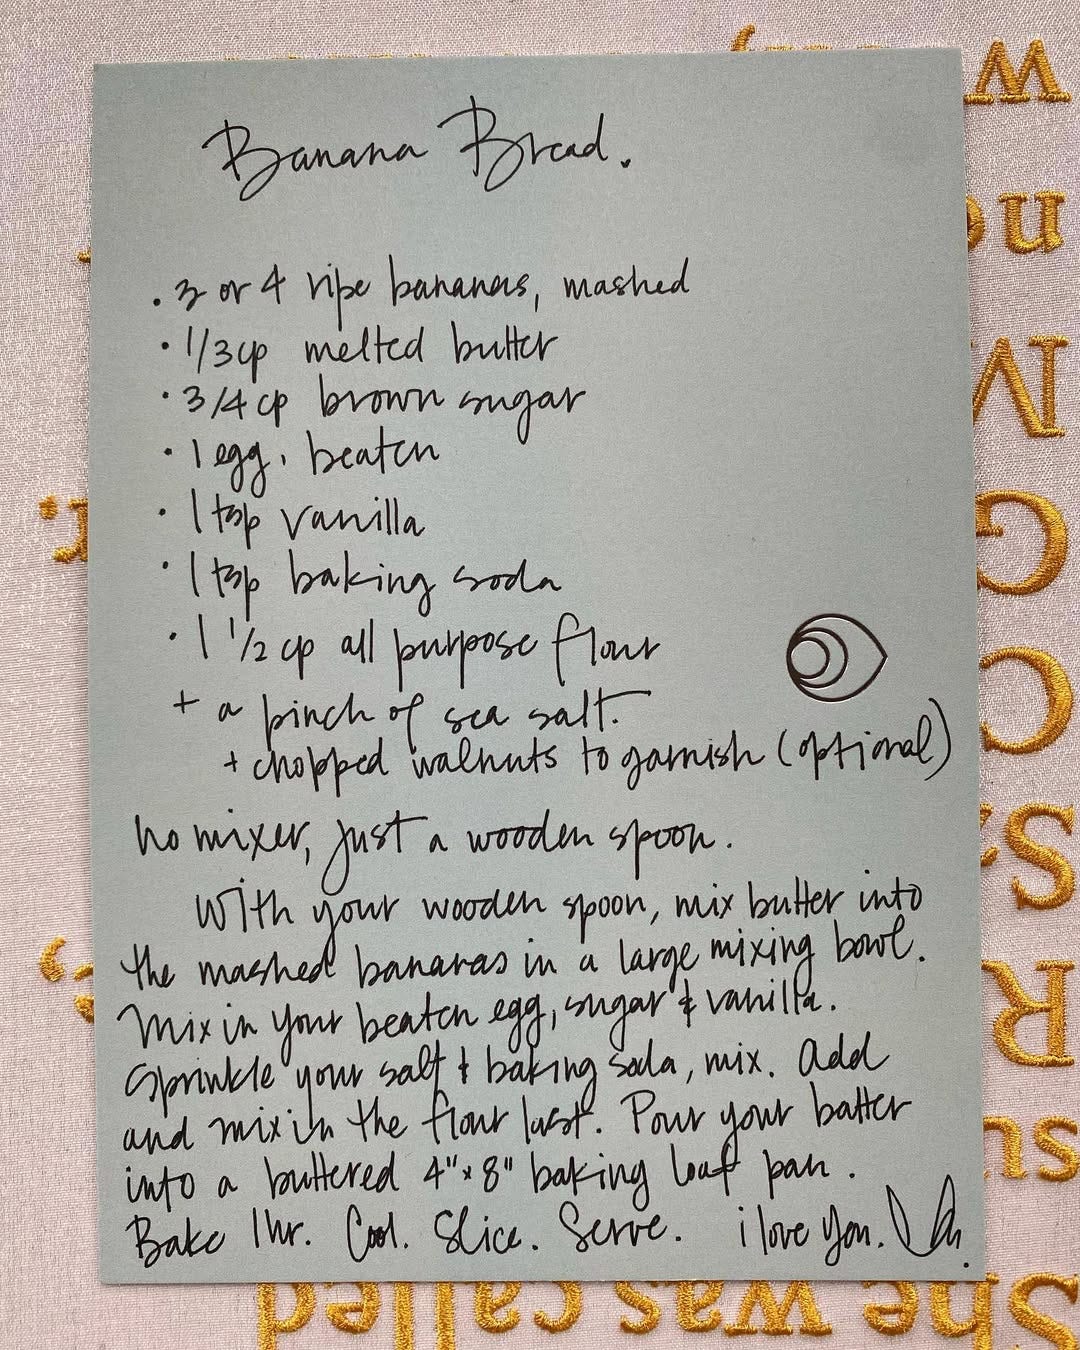 Banana Bread.
· 3 or 4 ripe bananas, mashed
· 1/3 cp melted butter
· 3/4 cp brown sugar
· 1 egg, beaten
· 1 tsp vanilla
· 1 tsp baking soda
· 1 1/2 cp all purpose flour
+ a pinch of sea salt.
+ chopped walnuts to garnish (optional)
no mixer, just a wooden spoon.
With your wooden spoon, mix butter into
the mashed bananas in a large mixing bowl.
Mix in your beaten egg, sugar & vanilla.
Sprinkle your salt & baking soda, mix. Add
and mix in the flour last. Pour your batter
into a buttered 4"x8" baking loaf pan.
Bake 1 hr. Cool. Slice. Serve. i love you.
She was called